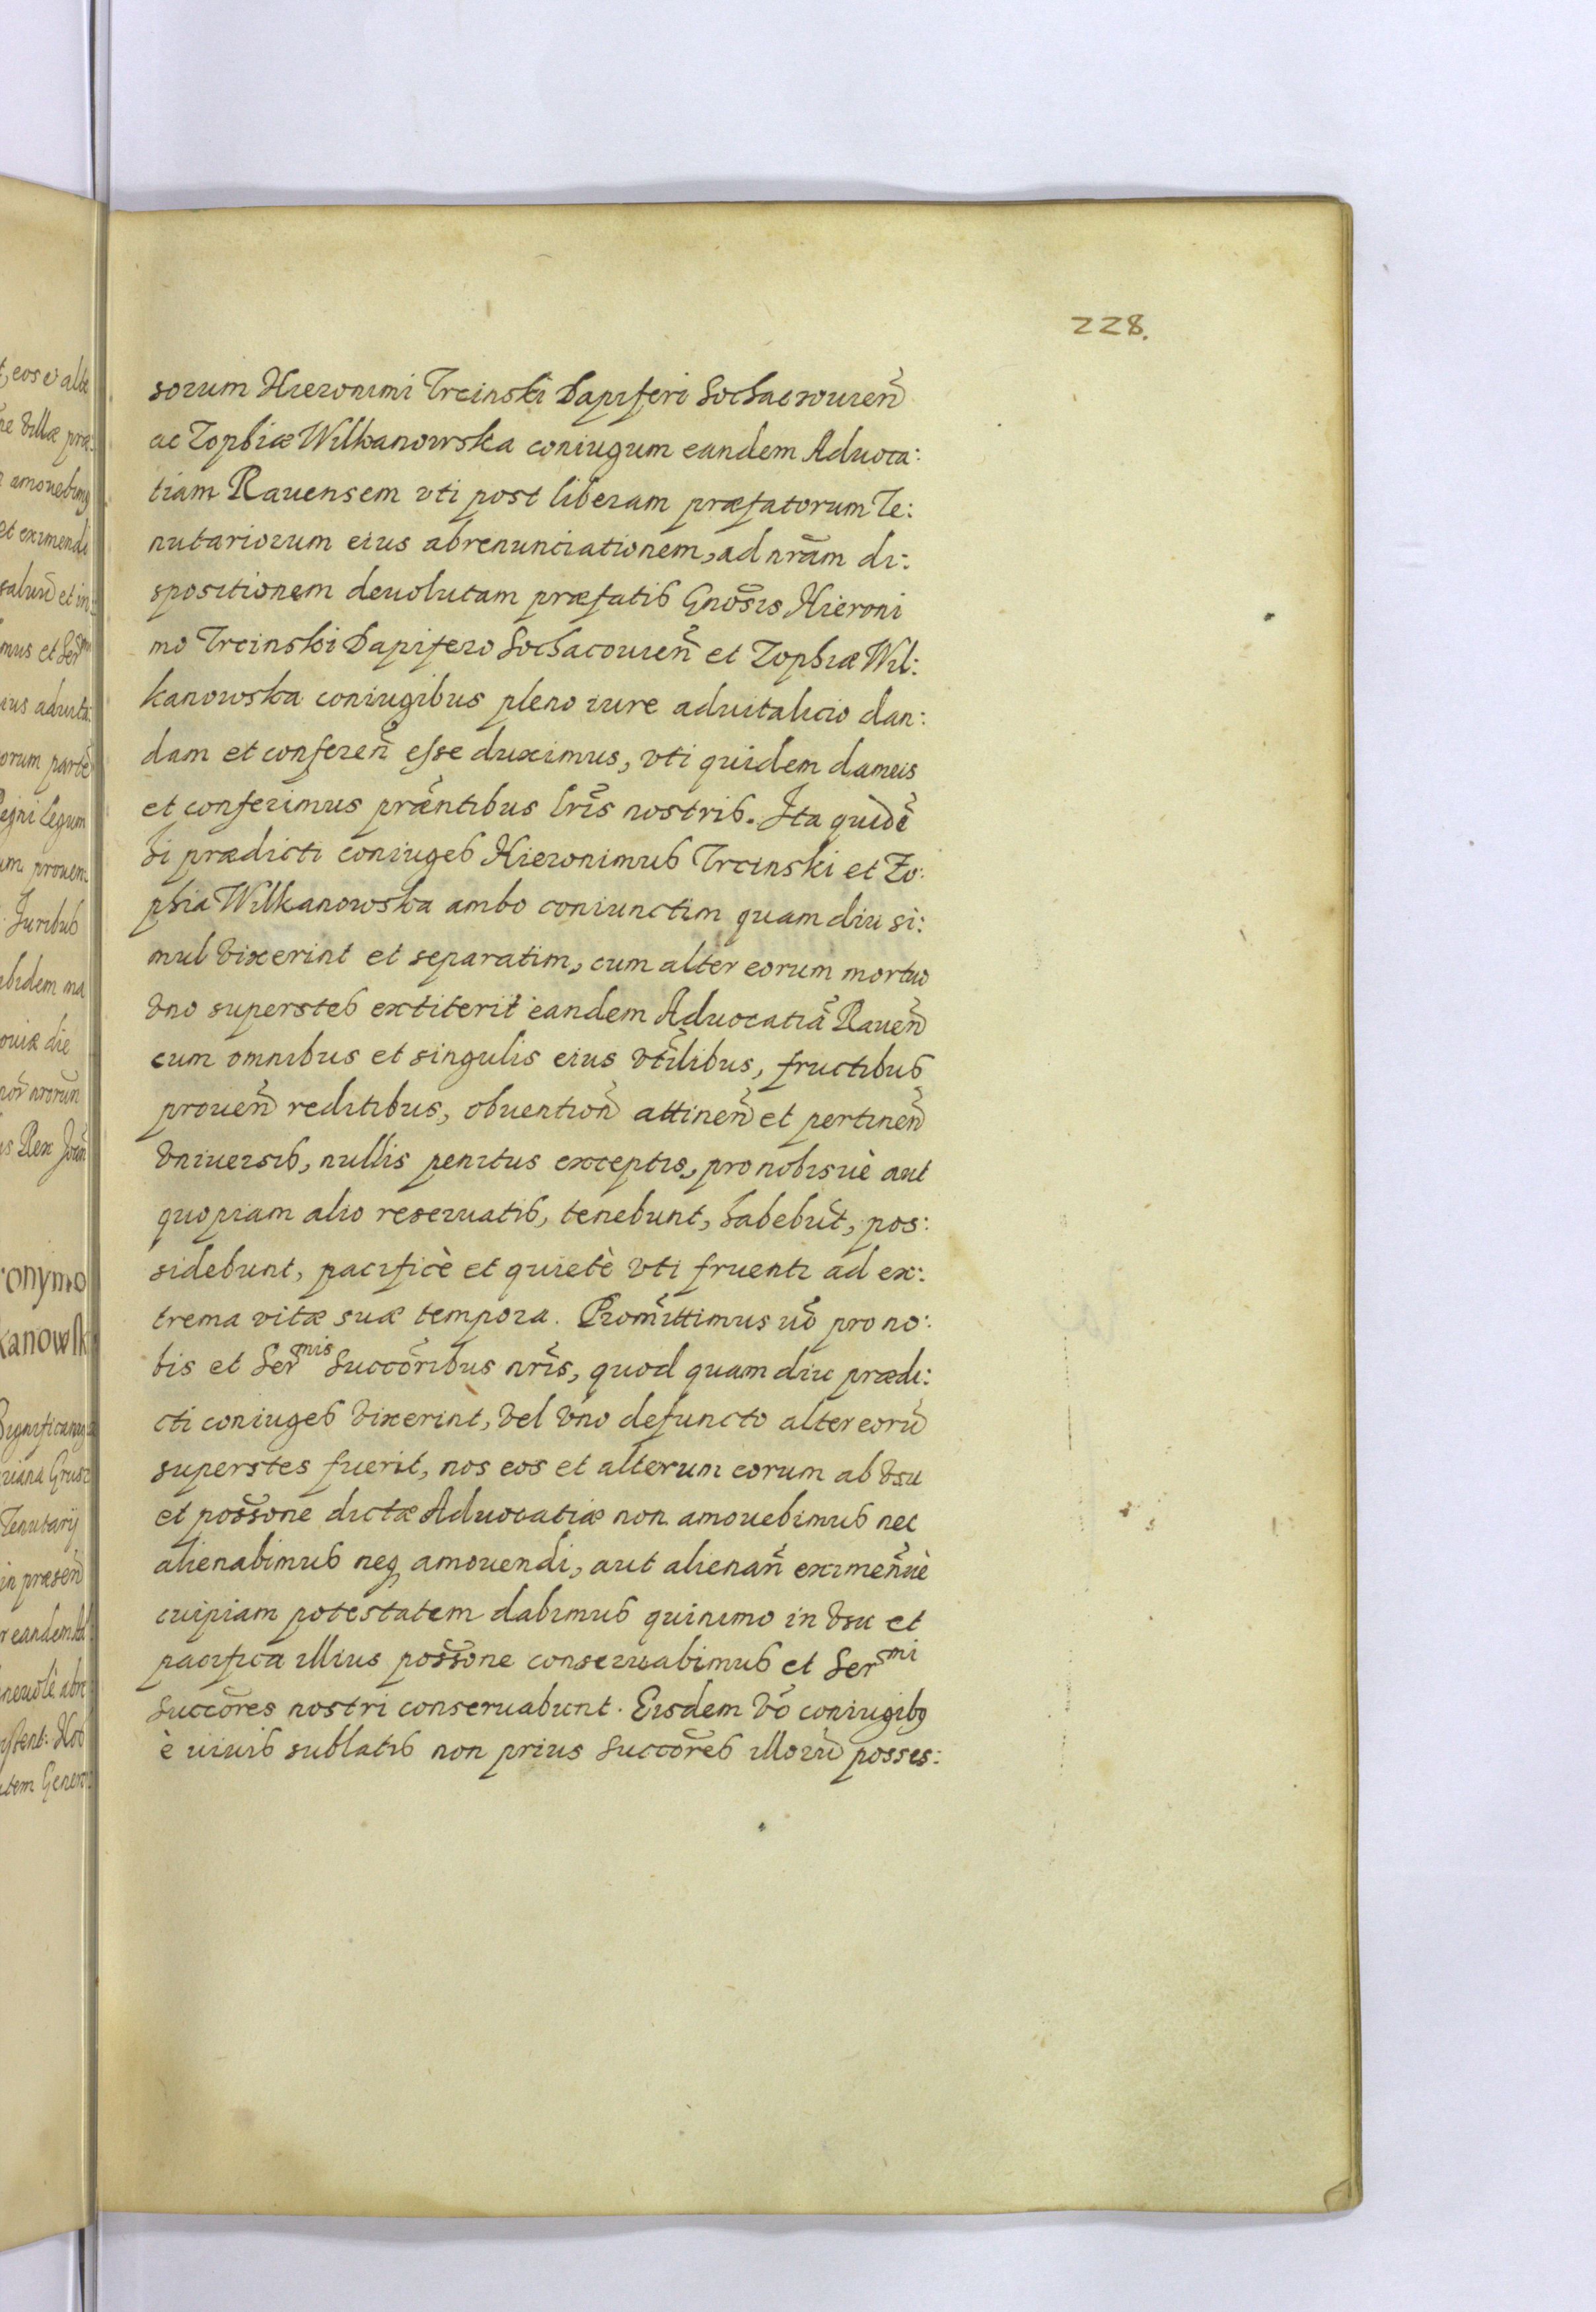 228.
sorum Hieronimi Trcinski Dapiferi Sochaczouień
ac Zophiæ Wilkanowska coniugum eandem Aduoca:
tiam Rauensem vti post liberam præfatorum Te:
nutariorum eius abrenunciationem, ad nrãm di:
spositionem deuolutam præfatis Gnõsis Hieroni
mo Trcinski Dapifero Sochacouień et Zophiæ Wil:
kanowska coniugibus pleno iure aduitalicio dan:
dam et conferen̄ esse duximus, vti quidem damus
et conferimus præ̃ntibus lrĩs nostris. Ita quidẽ
hi prædicti coniuges Hieronimus Trcinski et Zo:
phia Wilkanowska ambo coniunctim quam diu si:
mul vixerint et separatim, cum alter eorum mortuo
vno superstes extiterit eandem Aduocatiã Raueñ
cum omnibus et singulis eius vtĩlibus, fructibus
proueñ reditibus, obuentioñ attineñ et pertineñ
vniuersis, nullis penitus exceptis, pro nobisuè aut
quopiam alio reseruatis, tenebunt, habebũt, pos:
sidebunt, pacificè et quietè vti fruenti ad ex:
trema vitæ suæ tempora. Prom̃ittimus uõ pro no:
bis et Sermis Succõribus nrĩs, quod quam diu prædi:
cti coniuges vixerint, vel vno defuncto alter eorũ
superstes fuerit, nos eos et alterum eorum ab vsu
et possõne dictæ Aduocatiæ non amouebimus nec
alienabimus neq, amouendi, aut alienañ eximeñuè
cuipiam potestatem dabimus quinimo in vsu et
pacifica illius possõne conseruabimus et Sermi
Succõres nostri conseruabunt. Eisdem võ coniugibq
è viuis sublatis non prius Succõres illorũ posses: